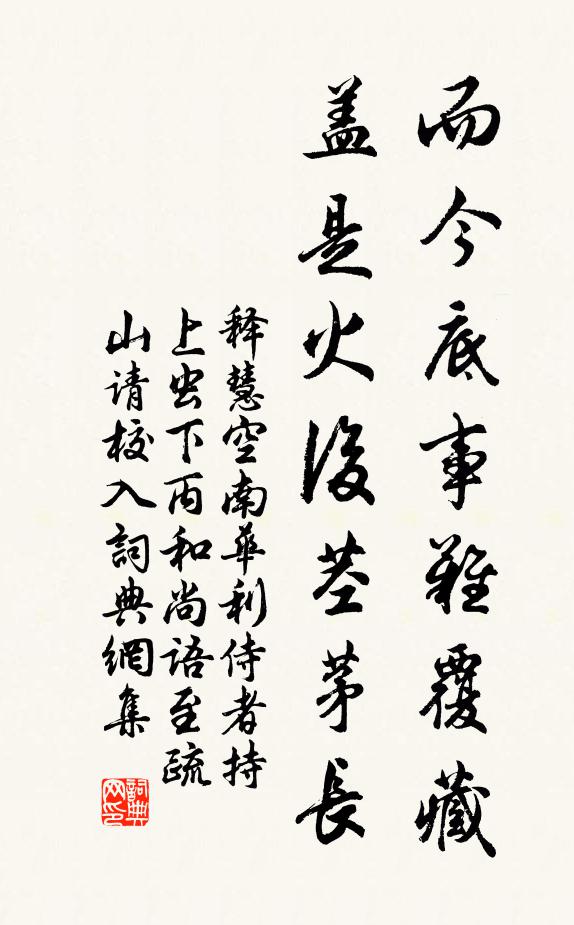 而今底事難覆藏
盖是火後茎茅長
释慧空南華利侍者持
上虫下丙和尚语至疏
山请校入詞典網集
詞典网印